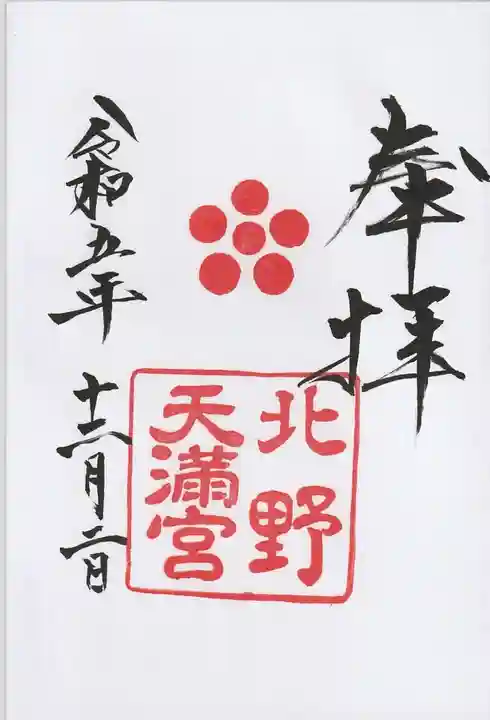 奉拝
北野
天満宮
令和五年
十二月二日